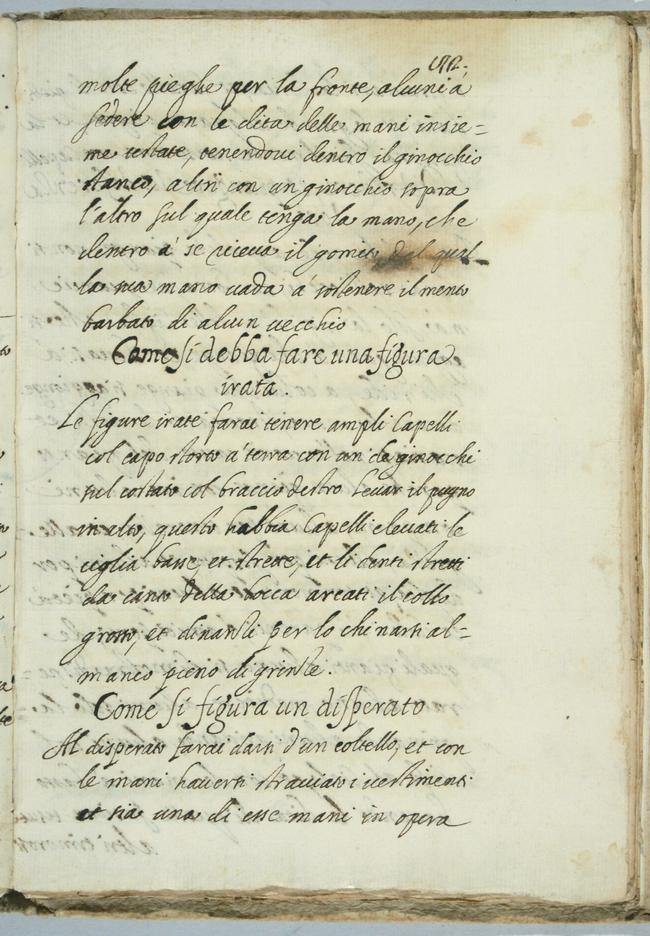 molte pieghe per la fronte, alcuni a
sedere con le dita delle mani insie=
me testate, tenendoui dentro il ginocchio
stanco, altri con un ginocchio sopra
l'altro sul quale tenga la mano, che
dentro à se riceua il gomito del qual
la sua mano uada à sostenere il mento
barbato di alcun uecchio
Come si debba fare una figura
irata.
Le figure irate farai tenere ampli Capelli
col capo storto à terra con un de ginocchi
sul costato col braccio destro leuar il pugno
in alto, questo habbia Capelli eleuati le
ciglia basse, et strette, et li denti stretti
da canto della bocca arcati il collo
grosso, et dinanzi per lo chinarsi al=
manco pieno di grinze.
Come si figura un disperato
Al disperato farai darsi d'un coltello, et con
le mani hauersi stracciato i uestimenti
et sia una di esse mani in opera